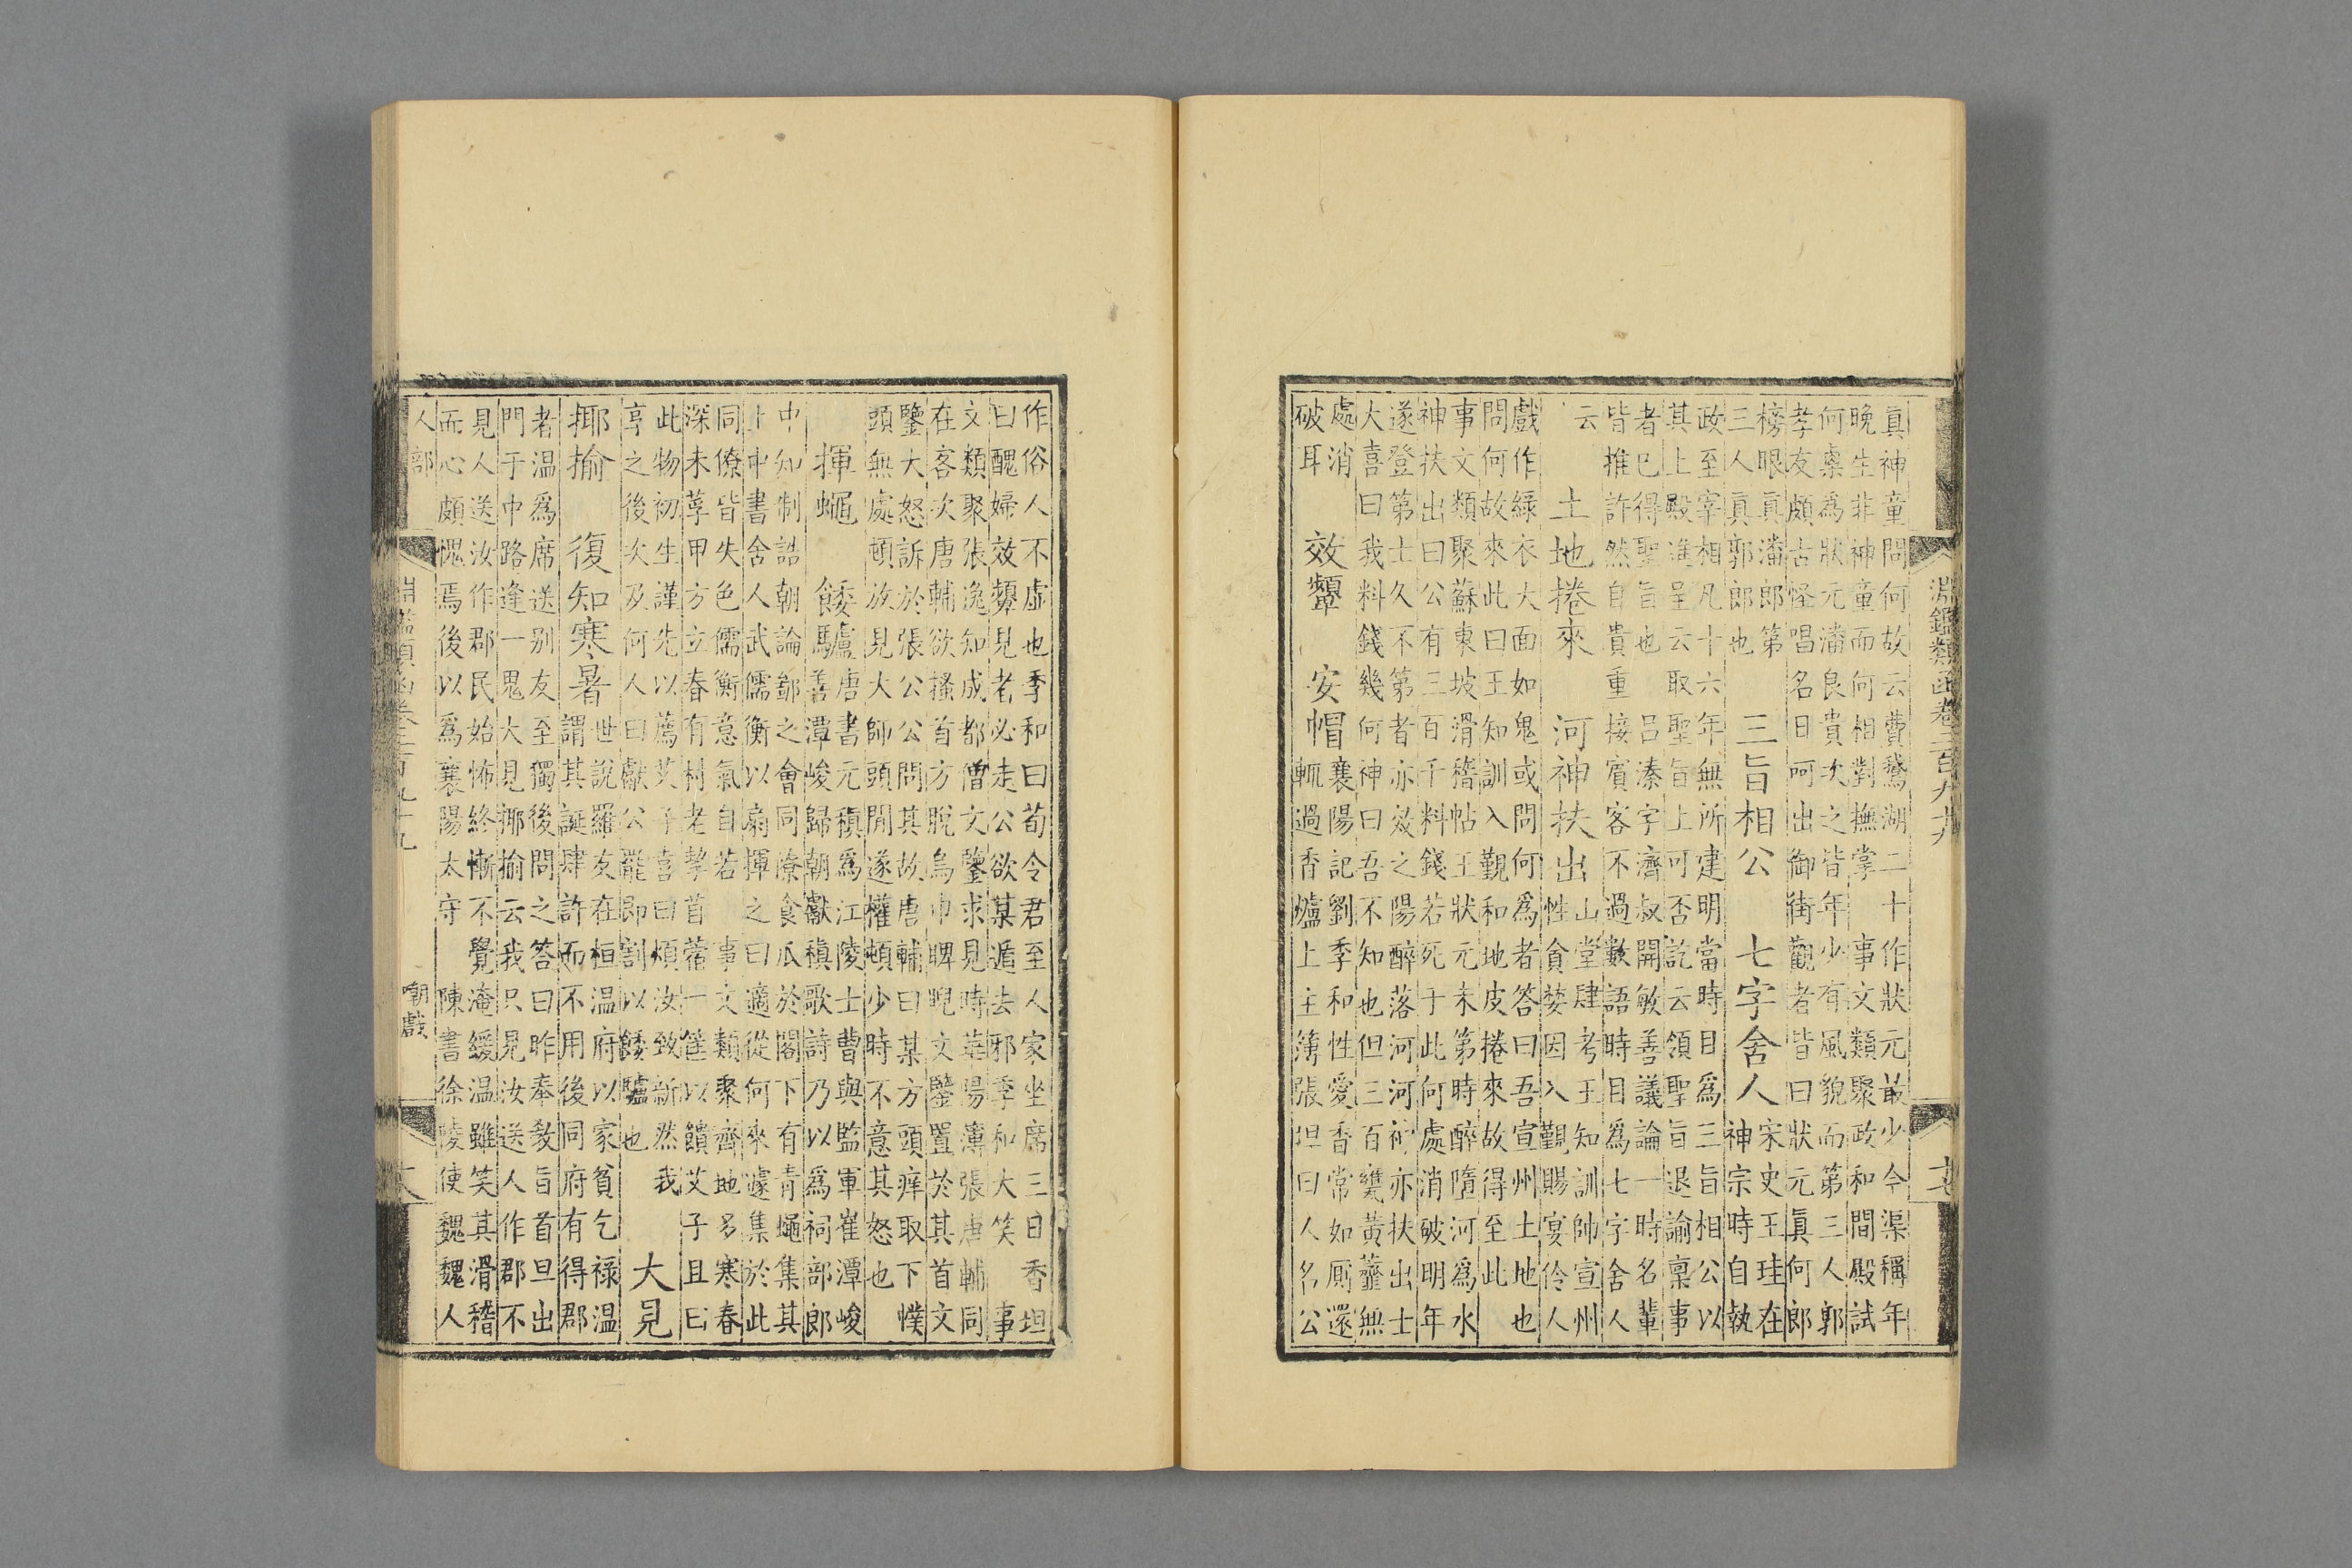 淵鑑類函卷二百九十九
十七
真神童問何故云費鵞湖二十作狀元最少今渠稱年
晚生非神童而何相對撫掌 事文類聚政和間殿試
何㮚為狀元潘良貴次之皆年少有風貌而第三人郭
孝友頗古怪唱名日呵出御街觀者皆曰狀元真何郎
榜眼真潘郎第
三人真郭郎也
三旨相公 七字舍人
宋史王珪在
神宗時自執
政至宰相凡十六年無所建明當時目爲三旨相公以
其上殿進呈云取聖旨上可否訖云領聖旨退諭稟事
者已得聖旨也 呂溱字濟叔開敏善議論一時名輩
皆推許然自貴重接賓客不過數語時目爲七字舍人
云
土地捲來 河神扶出
山堂肆考王知訓帥宣州
性貪婪因入覲賜宴伶人
戲作綠衣大面如鬼或問何爲者答曰吾宣州土地也
問何故來此曰王知訓入覲和地皮捲來故得至此
事文類聚蘇東坡滑稽帖王狀元未第時醉墮河爲水
神扶出曰公有三百千料錢若死于此何處消破明年
遂登第士久不第者亦效之陽醉落河河神亦扶出士
大喜曰我料錢幾何神曰吾不知也但三百甕黃虀無
處消
破耳
效顰 安帽
襄陽記劉季和性愛香常如厠還
輒過香爐上主簿張坦曰人名公
作俗人不虛也季和曰荀令君至人家坐席三日香坦
曰醜婦效顰見者必走公欲某遁去邪季和大笑 事
文類聚張逸知成都僧文鑒求見時華陽簿張唐輔同
在客次唐輔欲搔首方脫烏巾睥睨文鑒置於其首文
鑒大怒訴於張公公問其故唐輔曰某方頭痒取下幞
頭無處頓放見大師頭閒遂權頓少時不意其怒也
揮蠅 餧驢
唐書元稹爲江陵士曹與監軍崔潭峻
善潭峻歸朝獻稹歌詩乃以爲祠部郎
中知制誥朝論鄙之會同僚食瓜於閣下有青蠅集其
上中書舍人武儒衡以扇揮之曰適從何來遽集於此
同僚皆失色儒衡意氣自若 事文類聚齊地多寒春
深未莩甲方立春有村老挈苜蓿一筐以饋艾子且曰
此物初生謹先以薦艾子喜曰煩汝致新然我
享之後次及何人曰獻公罷即割以餧驢也
大見
揶揄 復知寒暑
世說羅友在桓温府以家貧乞祿温
謂其誕肆許而不用後同府有得郡
者温爲席送别友至獨後問之答曰昨奉教旨首旦出
門于中路逢一鬼大見揶揄云我只見汝送人作郡不
見人送汝作郡民始怖終慚不覺淹緩温雖笑其滑稽
而心頗愧焉後以爲襄陽太守 陳書徐陵使魏魏人
人部
淵鑑類函卷二百九十九
嘲戲